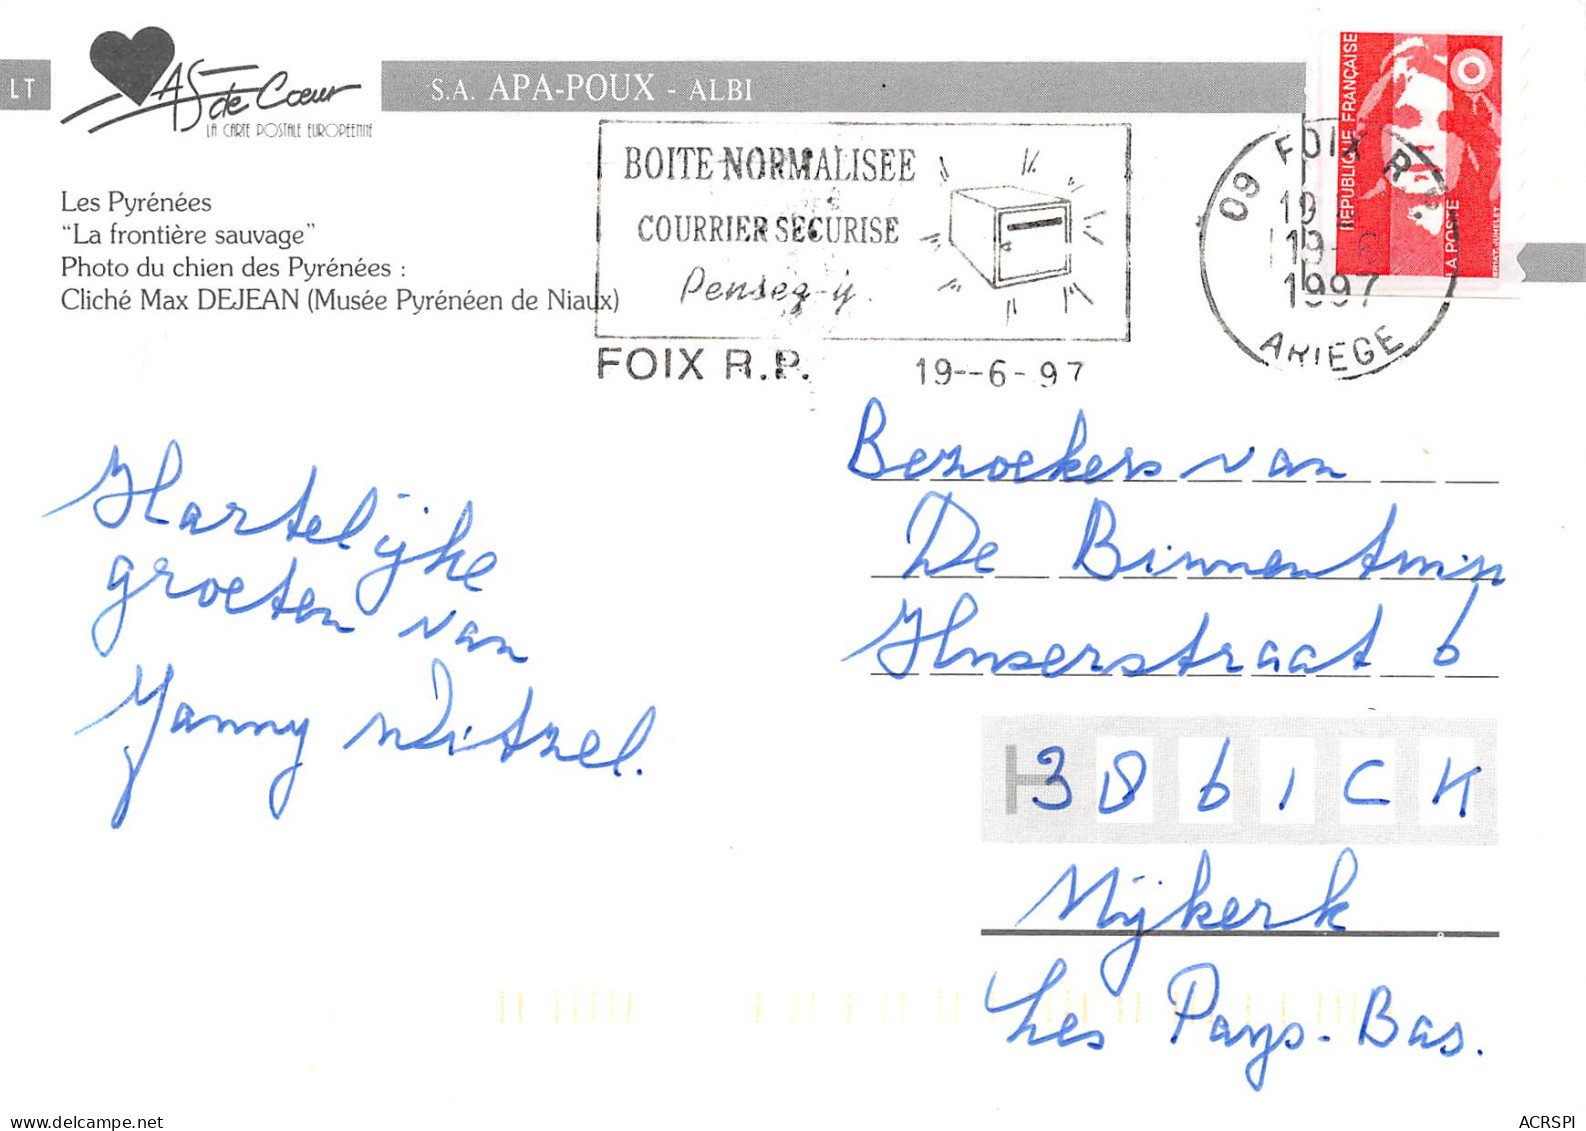 LT
AS de Cœur
LA CARTE POSTALE EUROPEENNE
S.A. APA-POUX - ALBI
RÉPUBLIQUE FRANÇAISE
LA POSTE
Les Pyrénées
“La frontière sauvage”
Photo du chien des Pyrénées :
Cliché Max DEJEAN (Musée Pyrénéen de Niaux)
BOITE NORMALISEE
COURRIER SECURISE
Pensez-y.
FOIX R.P. 19--6-97
09 FOIX R.P.
19
19-6
1997
ARIEGE
Hartelijke
groeten van
Janny Witzel.
Bezoekers van
De Binnentuin
Huserstraat 6
3861CK
Nijkerk
Les Pays-Bas.
ACRSPI